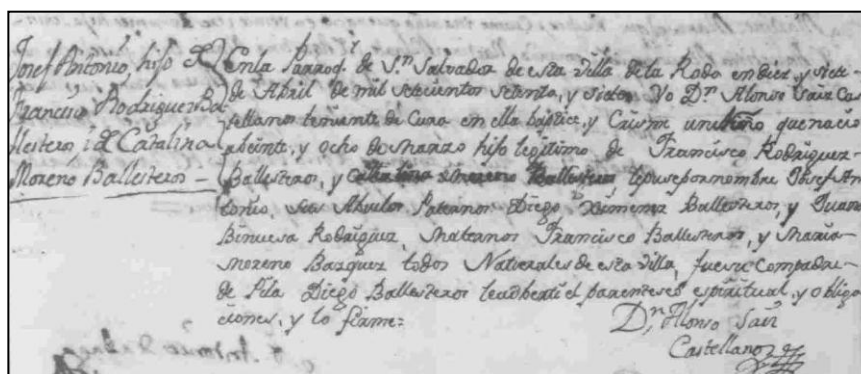 Josef Antonio, hijo de
Francisco Rodriguez Ba
llestero, i de Catalina
Moreno Ballesteros =
En la Parroq.l de S.n Salvador de esta Villa de la Roda en diez, y siete
de Abril de mil setecientos setenta, y siete: Yo D.n Alonso Saiz Cas
tellanos teniente de Cura en ella baptice, y Crisme un niño que nacio
a beinte, y ocho de Marzo hijo legitimo de Francisco Rodriguez
Ballesteros, y Catalina Moreno Ballesteros, lepuse por nombre Josef An
tonio, sus Abuelos Paternos Diego Ximenez Ballesteros, y Juana
Binuesa Rodriguez, Maternos Francisco Ballesteros, y Maria
Moreno Bazquez todos Naturales de esta Villa, fue su Compadre
de Pila Diego Ballesteros le adberti el parentesco espiritual, y obliga
ciones, y lo firme =
D.n Alonso Saiz
Castellanos